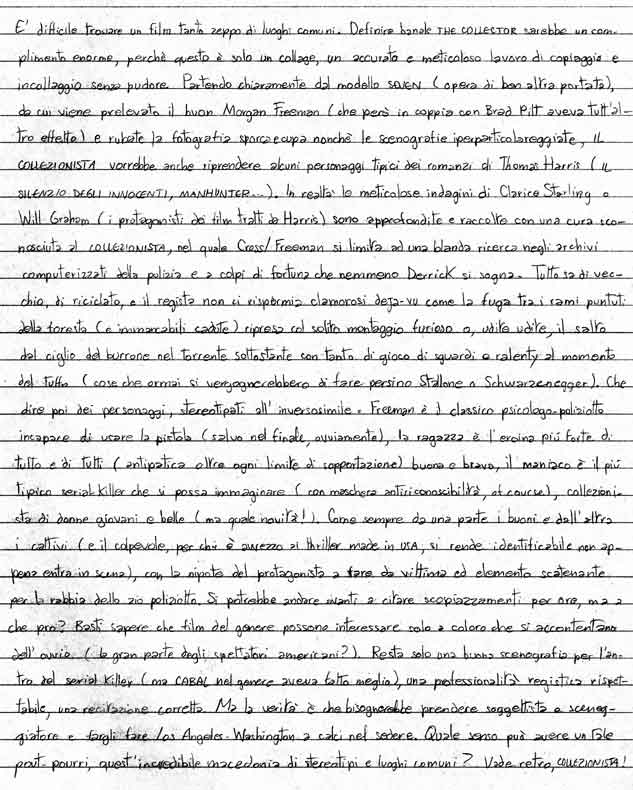 E' difficile trovare un film tanto zeppo di luoghi comuni. Definire banale THE COLLECTOR sarebbe un com-
plimento enorme, perchè questo è solo un collage, un accurato e meticoloso lavoro di copiaggio e
incollaggio senza pudore. Partendo chiaramente dal modello SEVEN (opera di ben altra portata),
da cui viene prelevato il buon Morgan Freeman (che però in coppia con Brad Pitt aveva tutt'al-
tro effetto) e rubate la fotografia sporcaecupa nonchè le scenografie iperparticolareggiate, IL
COLLEZIONISTA vorrebbe anche riprendere alcuni personaggi tipici dei romanzi di Thomas Harris (IL
SILENZIO DEGLI INNOCENTI, MANHUNTER...). In realtà le meticolose indagini di Clarice Starling e
Will Graham (i protagonisti dei film tratti da Harris) sono approfondite e raccolte con una cura sco-
nosciuta al COLLEZIONISTA, nel quale Cross/Freeman si limita ad una blanda ricerca negli archivi
computerizzati della polizia e a colpi di fortuna che nemmeno Derrick si sogna. Tutto sa di vec-
chio, di riciclato, e il regista non ci risparmia clamorosi deja-vu come la fuga tra i rami puntuti
della foresta (e immancabili cadute) ripresa col solito montaggio furioso o, udite udite, il salto
dal ciglio del burrone nel torrente sottostante con tanto di gioco di sguardi e ralenty al momento
del tuffo (cose che ormai si vergognerebbero di fare persino Stallone o Schwarzenegger). Che
dire poi dei personaggi, stereotipati all'inverosimile. Freeman è il classico psicologo-poliziotto
incapace di usare la pistola (salvo nel finale, ovviamente), la ragazza è l'eroina più forte di
tutto e di tutti (antipatica oltre ogni limite di sopportazione) buona e brava, il maniaco è il più
tipico serial-killer che si possa immaginare (con maschera antiriconoscibilità, of course), collezioni-
sta di donne giovani e belle (ma quale novità!). Come sempre da una parte i buoni e dall'altra
i cattivi (e il colpevole, per chi è avvezzo al thriller made in USA, si rende identificabile non ap-
pena entra in scena), con la nipote del protagonista a fare da vittima ed elemento scatenante
per la rabbia dello zio poliziotto. Si potrebbe andare avanti a citare scopiazzamenti per ore, ma a
che pro? Basti sapere che film del genere possono interessare solo a coloro che si accontentano
dell'ovvio (la gran parte degli spettatori americani?). Resta solo una buona scenografia per l'an-
tro del serial killer (ma CABAL nel genere aveva fatto meglio), una professionalità registica rispet-
tabile, una recitazione corretta. Ma la verità è che bisognerebbe prendere soggettista e sceneg-
giatore e fargli fare Los Angeles-Washington a calci nel sedere. Quale senso può avere un tale
pout-pourri, quest'incredibile macedonia di stereotipi e luoghi comuni? Vade retro, COLLEZIONISTA!